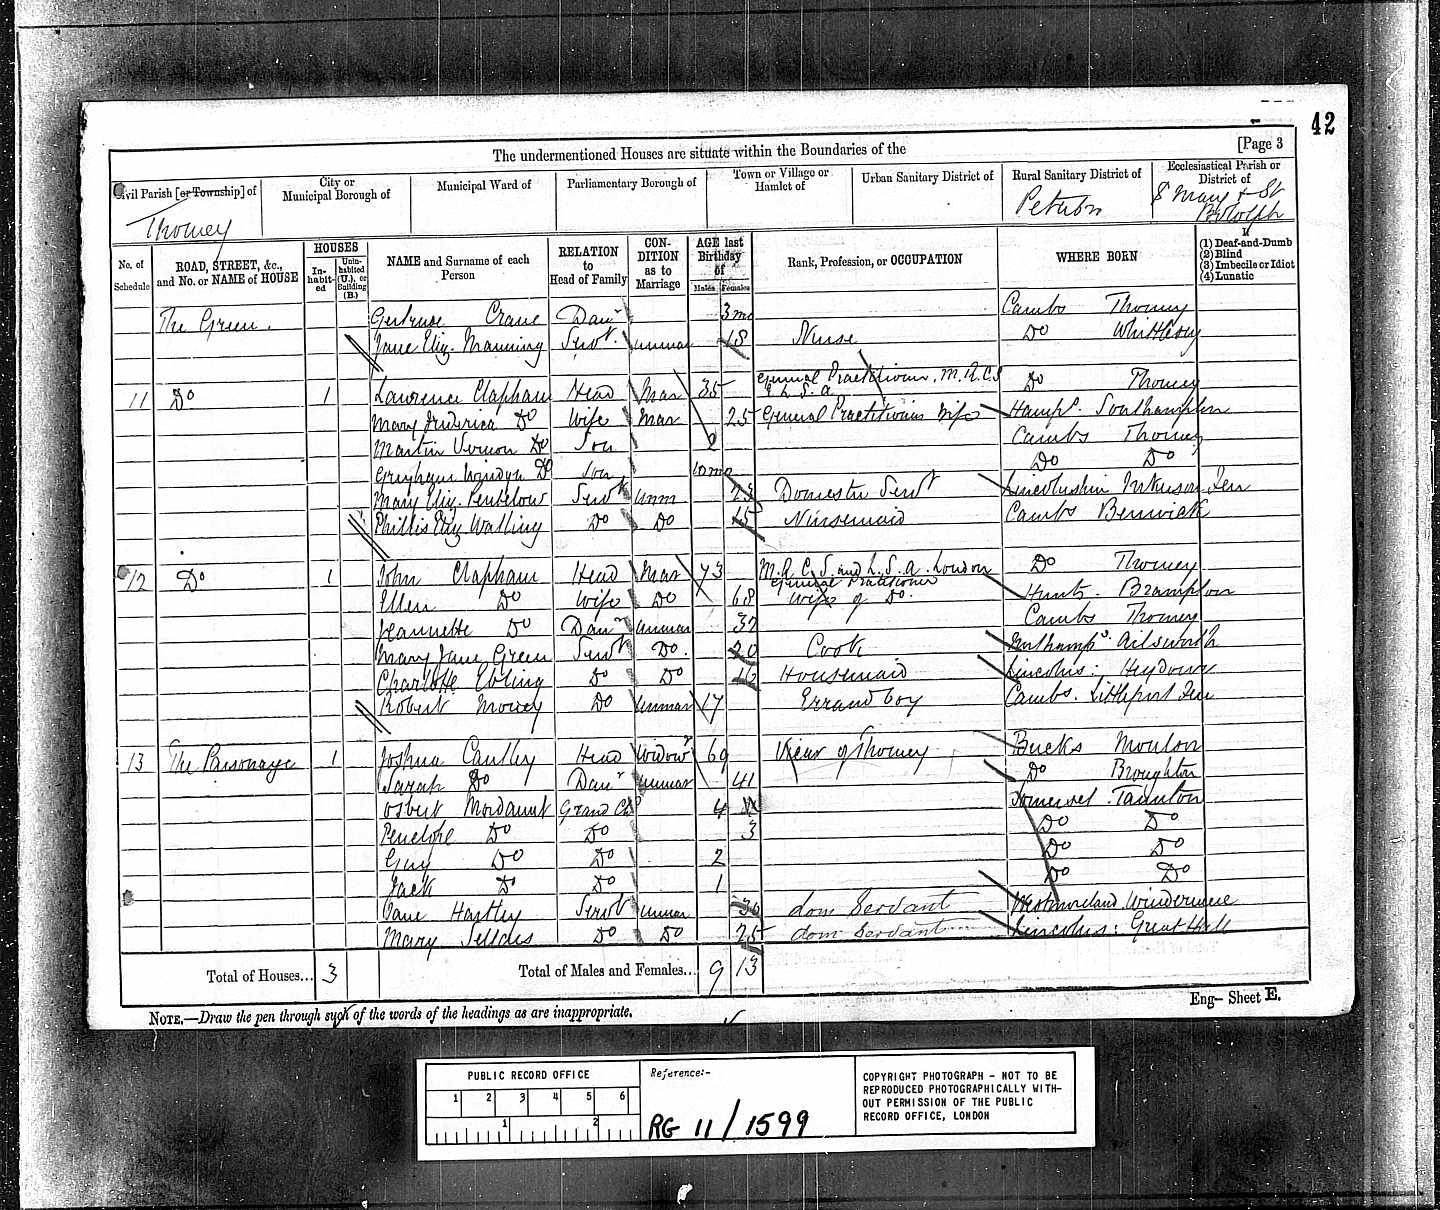 42
The undermentioned Houses are situate within the Boundaries of the [Page 3
Civil Parish [or Township] of
City or Municipal Borough of
Municipal Ward of
Parliamentary Borough of
Town or Village or Hamlet of
Urban Sanitary District of
Rural Sanitary District of
Ecclesiastical Parish or District of
Thorney
Peterboro
S Mary & St Botolph
No. of Schedule
ROAD, STREET, &c., and No. or NAME of HOUSE
HOUSES
Inhabited
Uninhabited (U.), or Building (B.)
NAME and Surname of each Person
RELATION to Head of Family
CONDITION as to Marriage
AGE last Birthday of
Males Females
Rank, Profession, or OCCUPATION
WHERE BORN
If
(1) Deaf-and-Dumb
(2) Blind
(3) Imbecile or Idiot
(4) Lunatic
The Green. Gertrude Crane Daur 3mo Cambs Thorney
Jane Eliz. Manning Servt. unmar 18 Nurse Do Whittlesey
11 Do 1 Laurence Clapham Head Mar 35 General Practitioner, M.R.C.S & L.S.A Do Thorney
Mary Frederica Do Wife Mar 25 General Practitioners Wife Hamps. Southampton
Martin Vernon Do Son 2 Cambs Thorney
Do son 10mo Do Do
Mary Eliz. Servt unm 23 Domestic Servt Lincolnshire Fen
Phillis Eliz Watling Do Do 15 Nursemaid Cambs Benwick
12 Do 1 John Clapham Head Mar 73 M.R.C.S and L.S.A. London General Practitioner Do Thorney
Ellen Do Wife Do 68 Wife of Do. Hunts. Brampton
Jeannette Do Daur unmar 37 Cambs Thorney
Mary Jane Green Servt Do. 20 Cook Northamps: Ailsworth
Charlotte Ebling Do Do 16 Housemaid Lincolns:
Robert Do unmar 17 Errand boy Cambs. Littleport Fen
13 The Parsonage 1 Joshua Cautley Head Widowr 69 Vicar of Thorney Bucks Moulson
Sarah Do Daur unmar 41 Do Broughton
Osbert Mordaunt Grand Ch 4 Somerset. Taunton
Penelope Do Do 3 Do Do
Guy Do Do 2 Do Do
Jack Do Do 1 Do Do
Jane Hartley Servt unmar 30 dom Servant Westmoreland Windermere
Mary Sellars Do Do 25 dom Servant Lincolns:
Total of Houses... 3 Total of Males and Females... 9 13
NOTE.—Draw the pen through such of the words of the headings as are inappropriate.
Eng— Sheet E.
PUBLIC RECORD OFFICE
1 2 3 4 5 6
1 2
Reference:-
RG 11/1599
COPYRIGHT PHOTOGRAPH - NOT TO BE
REPRODUCED PHOTOGRAPHICALLY WITH-
OUT PERMISSION OF THE PUBLIC
RECORD OFFICE, LONDON